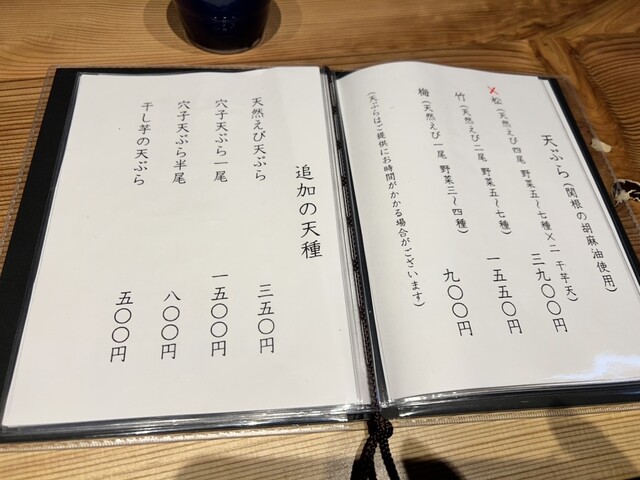 天ぷら（関根の胡麻油使用）
松（天然えび四尾　野菜五〜七種×二　干芋天）　三九〇〇円
竹（天然えび二尾　野菜五〜七種）　一五五〇円
梅（天然えび一尾　野菜三〜四種）　九〇〇円
（天ぷらはご提供にお時間がかかる場合がございます）
追加の天種
天然えび天ぷら　三五〇円
穴子天ぷら一尾　一五〇〇円
穴子天ぷら半尾　八〇〇円
干し芋の天ぷら　五〇〇円